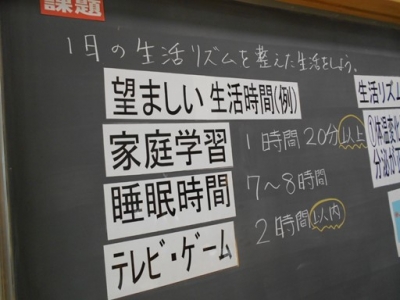 課題
1日の生活リズムを整えた生活をしよう。
望ましい生活時間(例)
家庭学習 1時間20分以上
睡眠時間 7~8時間
テレビ・ゲーム 2時間以内
生活リズム
①体温変化
分泌が